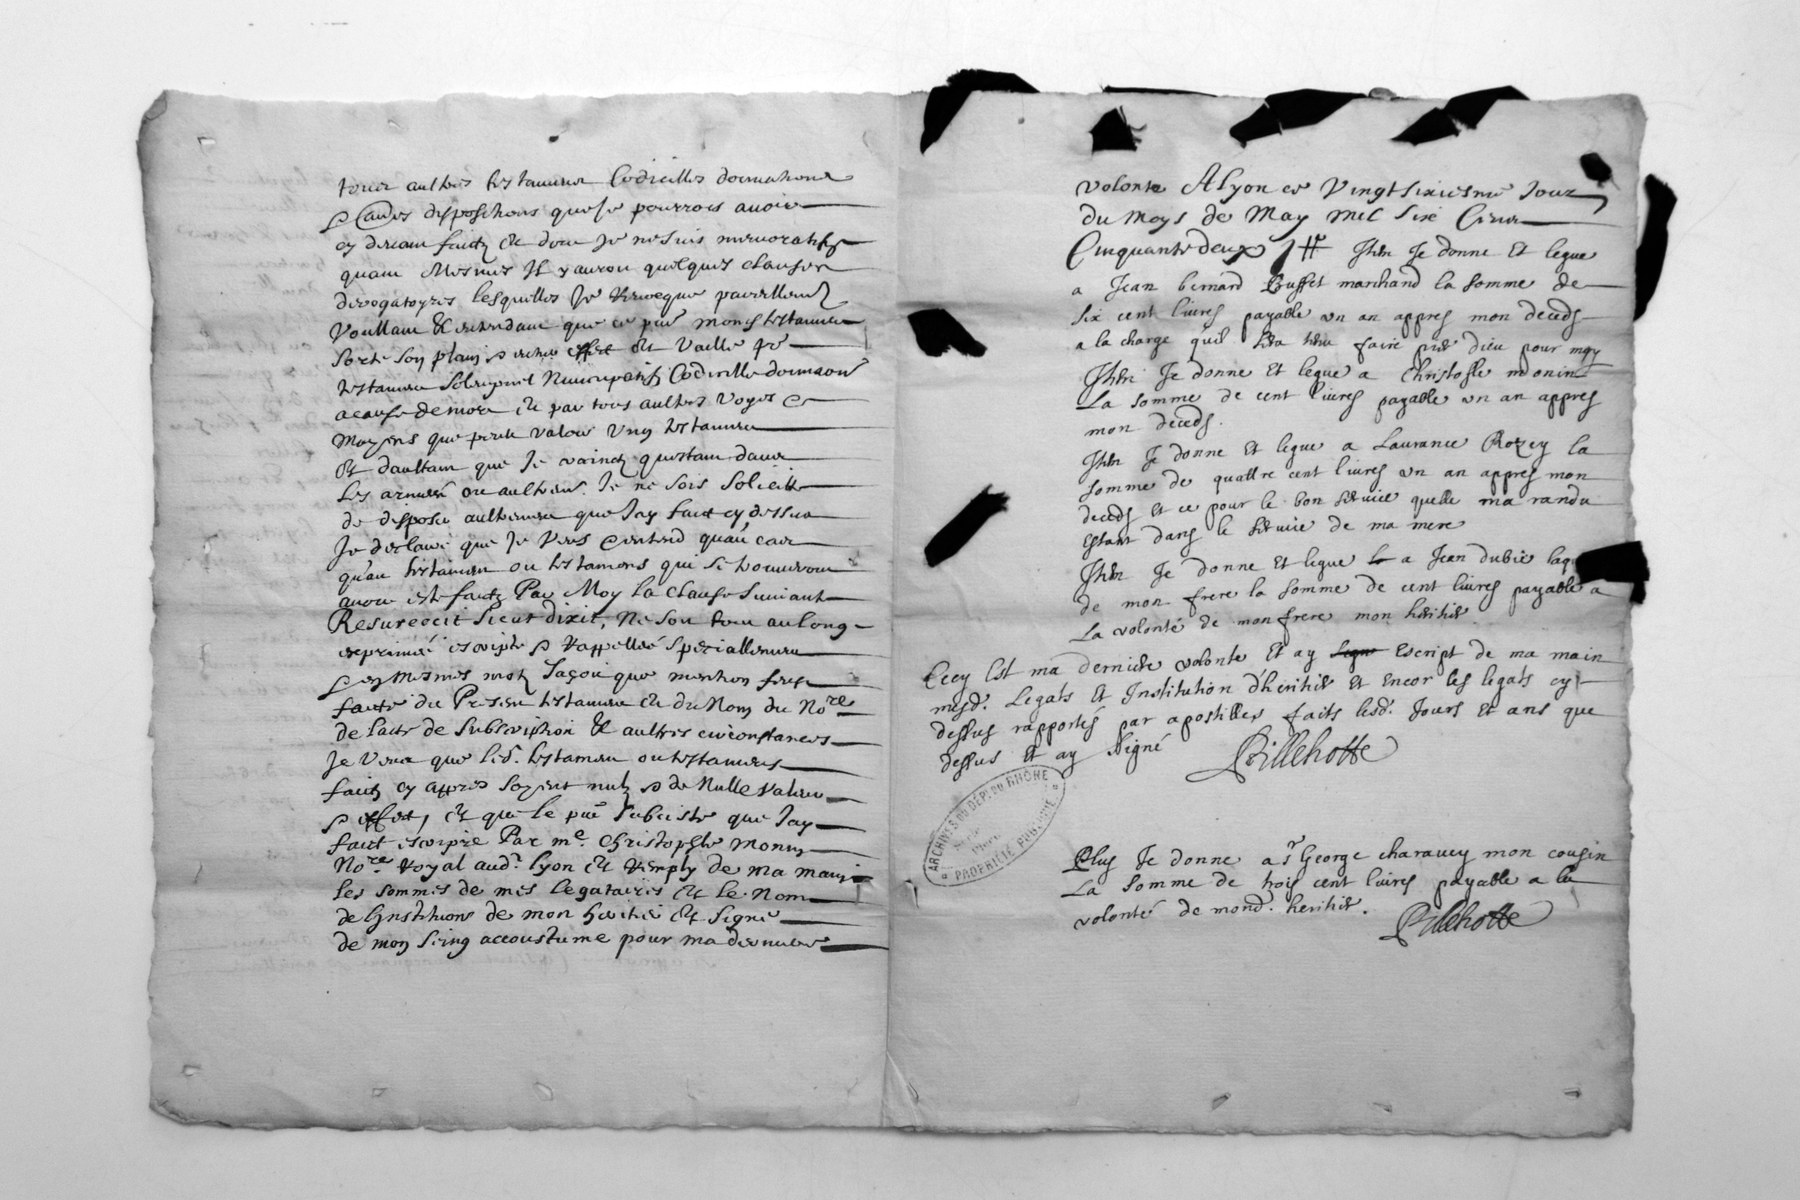 tous aultres testamens Codicilles donnations
& aultres dispositions que je pourrois avoir
cy devant faictz Et dont je ne suis memoratif
quant Mesmes Il y auroit quelques clauses
derogatoyres lesquelles Je revocque
Voullant & entendant que ce pnt mond. testament
sorte son plain & entier effect Et vaille pr
testament solempnel Nuncupatif Codicille donnaon
a cause de mort Et par tous aultres voyes &
Moyens que peult valoir Ung testament
Et daultant que Je crainctz questant dans
Les années ou aultrem. Je ne sois solicitté
de disposer aultrement que Jay faict cy dessus
Je declaire que Je veus & entend quau cas
qu'un testament ou testamens qui se trouveront
avoir esté faictz Par Moy La Clause suivant
Resurrexit sicut dixit, Ne soit tout au long
exprimée escripte & rappellée speciallement
& mesmes motz façon que mention soit
faicte du Present testament Et du Nom du Nore
de lacte de subscription & aultres circonstances
Je veux que led. testament ou testamens
faictz cy appres soyent nulz & de Nulle valeur
& effect, Et que le pnt subsiste que Jay
faict escripre Par me. Christophle Monin
Nore. royal aud. Lyon Et remply de ma main
les sommes de mes legataires Et le Nom
de Linstitutions de mon heritier Et signé
de mon seing accoustumé pour ma derniere
volonte A Lyon ce Vingt sixiesme Jour
du Moys de May mil six Cens
Cinquante deux Item Je donne Et legue
a Jean bernard Buffet marchand la somme de
six cent livres payable un an appres mon deceds
a la charge quil fera faire prier dieu pour moy
Item Je donne Et legue a Christofle monin
La somme de cent livres payable un an appres
mon deceds.
Item Je donne Et legue a Laurance Rozey la
somme de quattre cent livres un an appres mon
deceds Et ce pour le bon service quelle ma randu
estant dans le service de ma mere
Item Je donne Et legue a Jean dubié
de mon frere la somme de cent livres payable a
La volonté de mon frere mon heritier.
Cecy Est ma derniere volonte Et ay signé Escript de ma main
mesd. Legats Et Institution d'heritier Et Encor les legats cy
dessus rapportés par apostilles faits lesd. Jours Et ans que
dessus Et ay signé Pillehotte
ARCHIVES DU DÉP. DU RHÔNE
Plus Je donne a sr George charavey mon cousin
La somme de trois cent livres payable a la
volonté de mond. heritier. Pillehotte